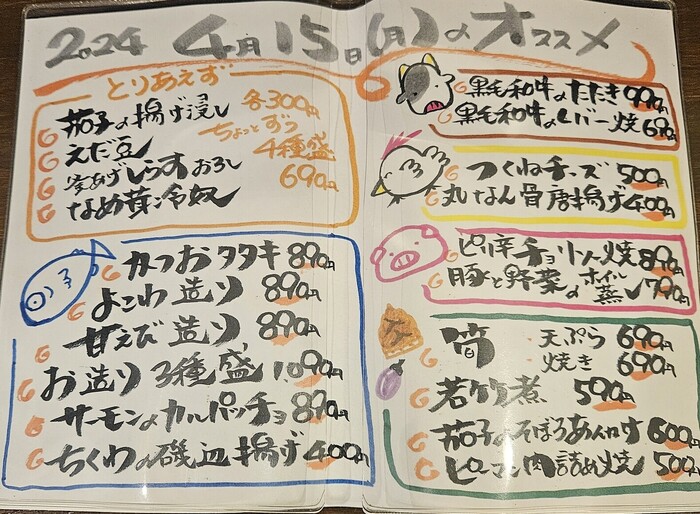 2024 4月15日(月)のオススメ
とりあえず
茄子の揚げ浸し 各300円
えだ豆 ちょっとずつ
釜あげしらすおろし 4種盛
なめ茸冷奴 690円
かつおタタキ 890円
よこわ造り 890円
甘えび造り 890円
お造り3種盛 1.090円
サーモンのカルパッチョ 890円
ちくわの磯辺揚げ 400円
黒毛和牛のたたき 990円
黒毛和牛のレバー焼 690
つくねチーズ 500円
丸なん骨唐揚げ 400円
ピリ辛チョリソー焼 890円
豚と野菜のホイル蒸し 790円
な
筍 天ぷら 690円
焼き 690円
若竹煮 590円
茄子のそぼろあんかけ 600円
ピーマン肉詰め焼 500円